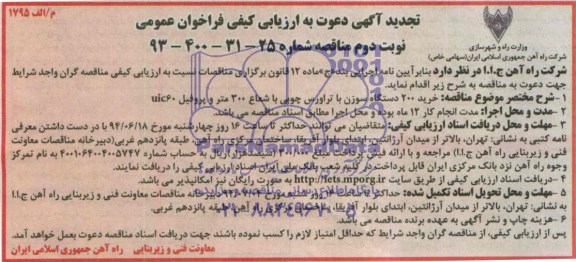 م/الف ۱۷۹۵
تجدید آگهی دعوت به ارزیابی کیفی فراخوان عمومی
نوبت دوم مناقصه شماره ۲۵ – ۳۱ – ۴۰۰ – ۹۳
وزارت راه و شهرسازی
شرکت راه آهن جمهوری اسلامی ایران(سهامی خاص)
شرکت راه آهن ج.ا.ا در نظر دارد بنابر آیین نامه اجرایی بند ج ماده ۱۲ قانون برگزاری مناقصات نسبت به ارزیابی کیفی مناقصه گران واجد شرایط
جهت دعوت به مناقصه به شرح زیر اقدام نماید.
۱– شرح مختصر موضوع مناقصه: خرید ۲۰۰ دستگاه سوزن با تراورس چوبی با شعاع ۳۰۰ متر و پروفیل uic۶۰
۲– مدت و محل اجرا: مدت انجام کار ۱۲ ماه بوده و محل اجرا مطابق اسناد مناقصه می باشد.
۳– مهلت و محل دریافت اسناد ارزیابی کیفی: متقاضیان می توانند حداکثر تا ساعت ۱۶ روز چهارشنبه مورخ ۹۴/۰۶/۱۸ با در دست داشتن معرفی
نامه کتبی به نشانی: تهران، بالاتر از میدان آرژانتین، ابتدای بلوار آفریقا، ساختمان مرکزی راه آهن، طبقه پانزدهم غربی(دبیرخانه مناقصات معاونت
فنی و زیربنایی راه آهن ج.ا.ا) مراجعه و با ارائه فیش پرداخت مبلغ هزار ریال به حساب شماره ۴۰۰۱۰۶۴۰۰۴۰۰۵۷۴۷ به نام تمرکز
وجوه راه آهن نزد بانک مرکزی ایران قابل پرداخت در کلیه شعب بانک ملی ایران اسناد ارزیابی کیفی را دریافت نمایند.
۴– دریافت اسناد ارزیابی کیفی از طریق سایت http://iets.mporg.ir به صورت رایگان نیز امکانپذیر می باشد.
۵– مهلت و محل تحویل اسناد تکمیل شده: حداکثر تا ساعت دبیرخانه مناقصات معاونت فنی و زیربنایی راه آهن ج.ا.ا
به نشانی: تهران، بالاتر از میدان آرژانتین، ابتدای بلوار آفریقا، ساختمان مرکزی راه آهن طبقه پانزدهم غربی.
۶– هزینه چاپ و نشر آگهی به عهده برنده مناقصه می باشد.
پس از ارزیابی کیفی، از مناقصه گران واجد شرایط که حداقل امتیاز لازم را کسب نموده باشند جهت دریافت اسناد مناقصه دعوت بعمل خواهد آمد.
معاونت فنی و زیربنایی راه آهن جمهوری اسلامی ایران